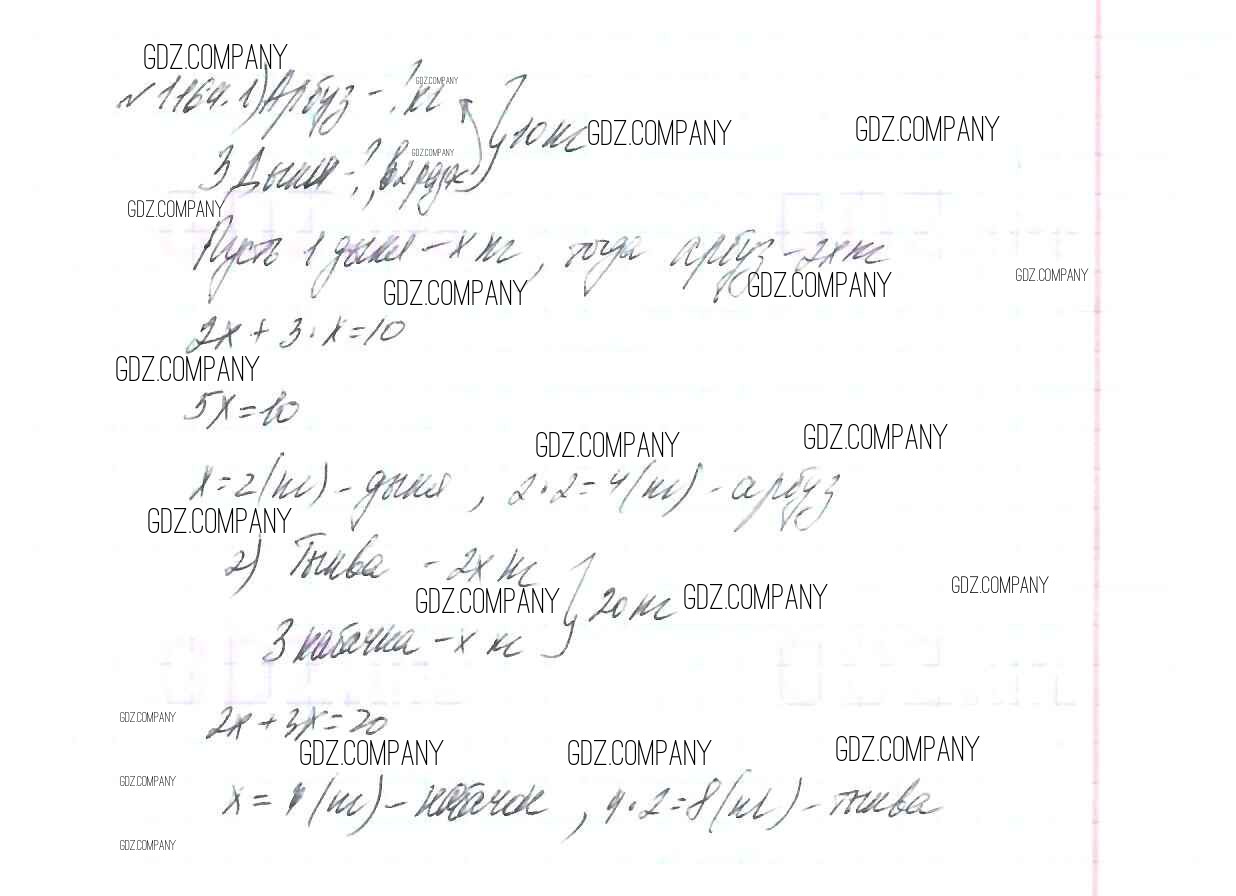 GDZ.COMPANY
№ 1164. 1) Арбуз - ? кг
GDZ.COMPANY
} 10 кг
GDZ.COMPANY
GDZ.COMPANY
3 Дыни - ?, в 2 р
GDZ.COMPANY
GDZ.COMPANY
Пусть 1 дыня - х кг, тогда арбуз - 2х кг
GDZ.COMPANY
GDZ.COMPANY
GDZ.COMPANY
2х + 3 · х = 10
GDZ.COMPANY
5х = 10
GDZ.COMPANY
GDZ.COMPANY
х = 2 (кг) - дыня, 2 · 2 = 4 (кг) - арбуз
GDZ.COMPANY
2) Тыква - 2х кг
GDZ.COMPANY
} 20 кг
GDZ.COMPANY
GDZ.COMPANY
3 кабачка - х кг
GDZ.COMPANY
2х + 3х = 20
GDZ.COMPANY
GDZ.COMPANY
GDZ.COMPANY
GDZ.COMPANY
х = 4 (кг) - кабачок, 4 · 2 = 8 (кг) - тыква
GDZ.COMPANY